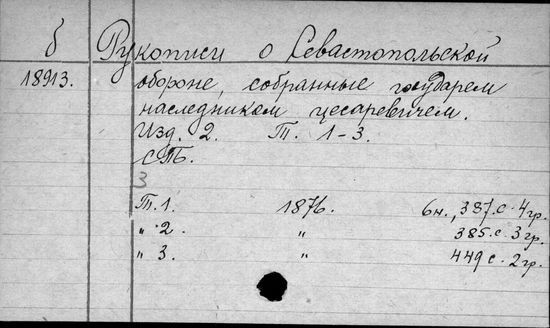 б Рукописи о Севастопольской
18913. обороне, собранные государем
наследником цесаревичем.
Изд. 2. Т. 1-3.
СПБ.
3
Т. 1. 1876. 6н., 337.с. 4 гр.
" 2. " 385.с. 3 гр.
" 3. " 449 с. 2 гр.